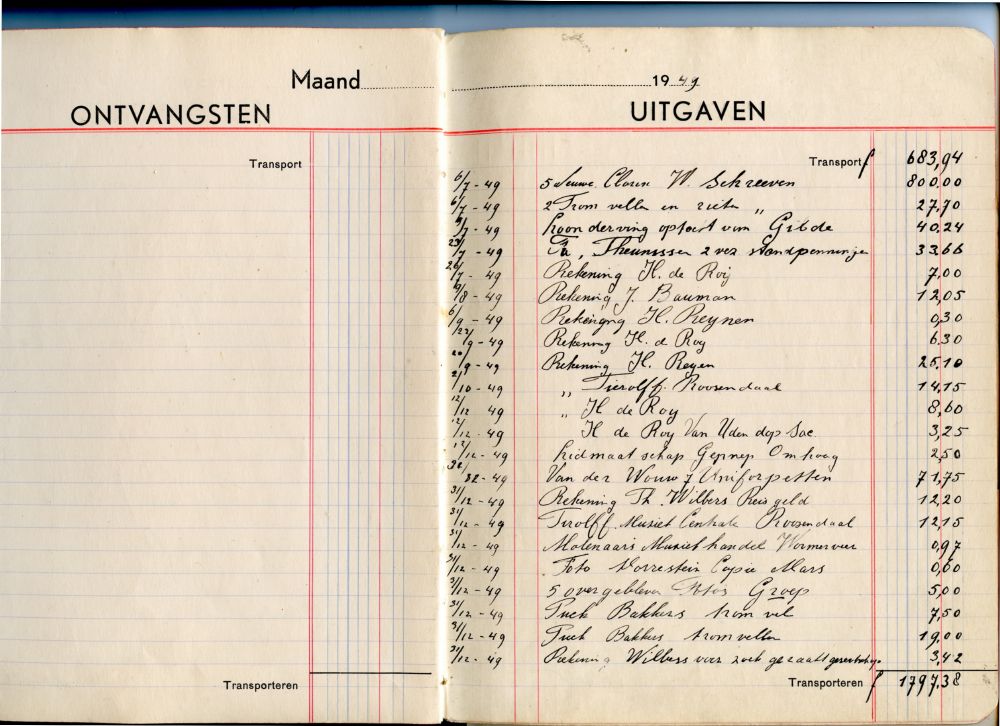 Maand 1949
ONTVANGSTEN UITGAVEN
Transport
Transport f 683,94
6/7 - 49 5 W. Schreeven 800,00
6/7 - 49 2 Trom vellen en „ 27,70
9/7 - 49 Loon derving van Gilde 40,24
/7 - 49 Fa, Theunissen 2 vez 33,66
/7 - 49 Rekening H. de Roij 7,00
9/8 - 49 Rekening J. Bauman 12,05
6/9 - 49 H. Reynen 0,30
/9 - 49 Rekening H. de Roy 6.30
20/9 - 49 Rekening H. Reyen 26,10
/10 - 49 „ Tierolff. Roosendaal 14,15
12/12 49 „ H de Roy 8,60
12/12 - 49 H de Roy Van Uden dop Soc. 3,25
12/12 - 49 Lidmaat schap Gennep Omhoog 2,50
- 49 Van der Wouw 7 Uniforpetten 71,75
31/12 - 49 Rekening Th. Wilbers Reis geld 12,20
31/12 - 49 Tirolff. Musiek Centrale Roosendaal 12,15
31/12 - 49 Molenaars Musiek handel Wormerveer 0,97
31/12 - 49 Foto Vorrestein Copie Mars 0,60
31/12 - 49 5 overgebleven Fotos Groep 5,00
31/12 - 49 Bakkers trom vel 7,50
31/12 - 49 Bakkers tromvellen 19,00
31/12 - 49 Rekening Wilbers voor 3,42
Transporteren
Transporteren f 1797,38